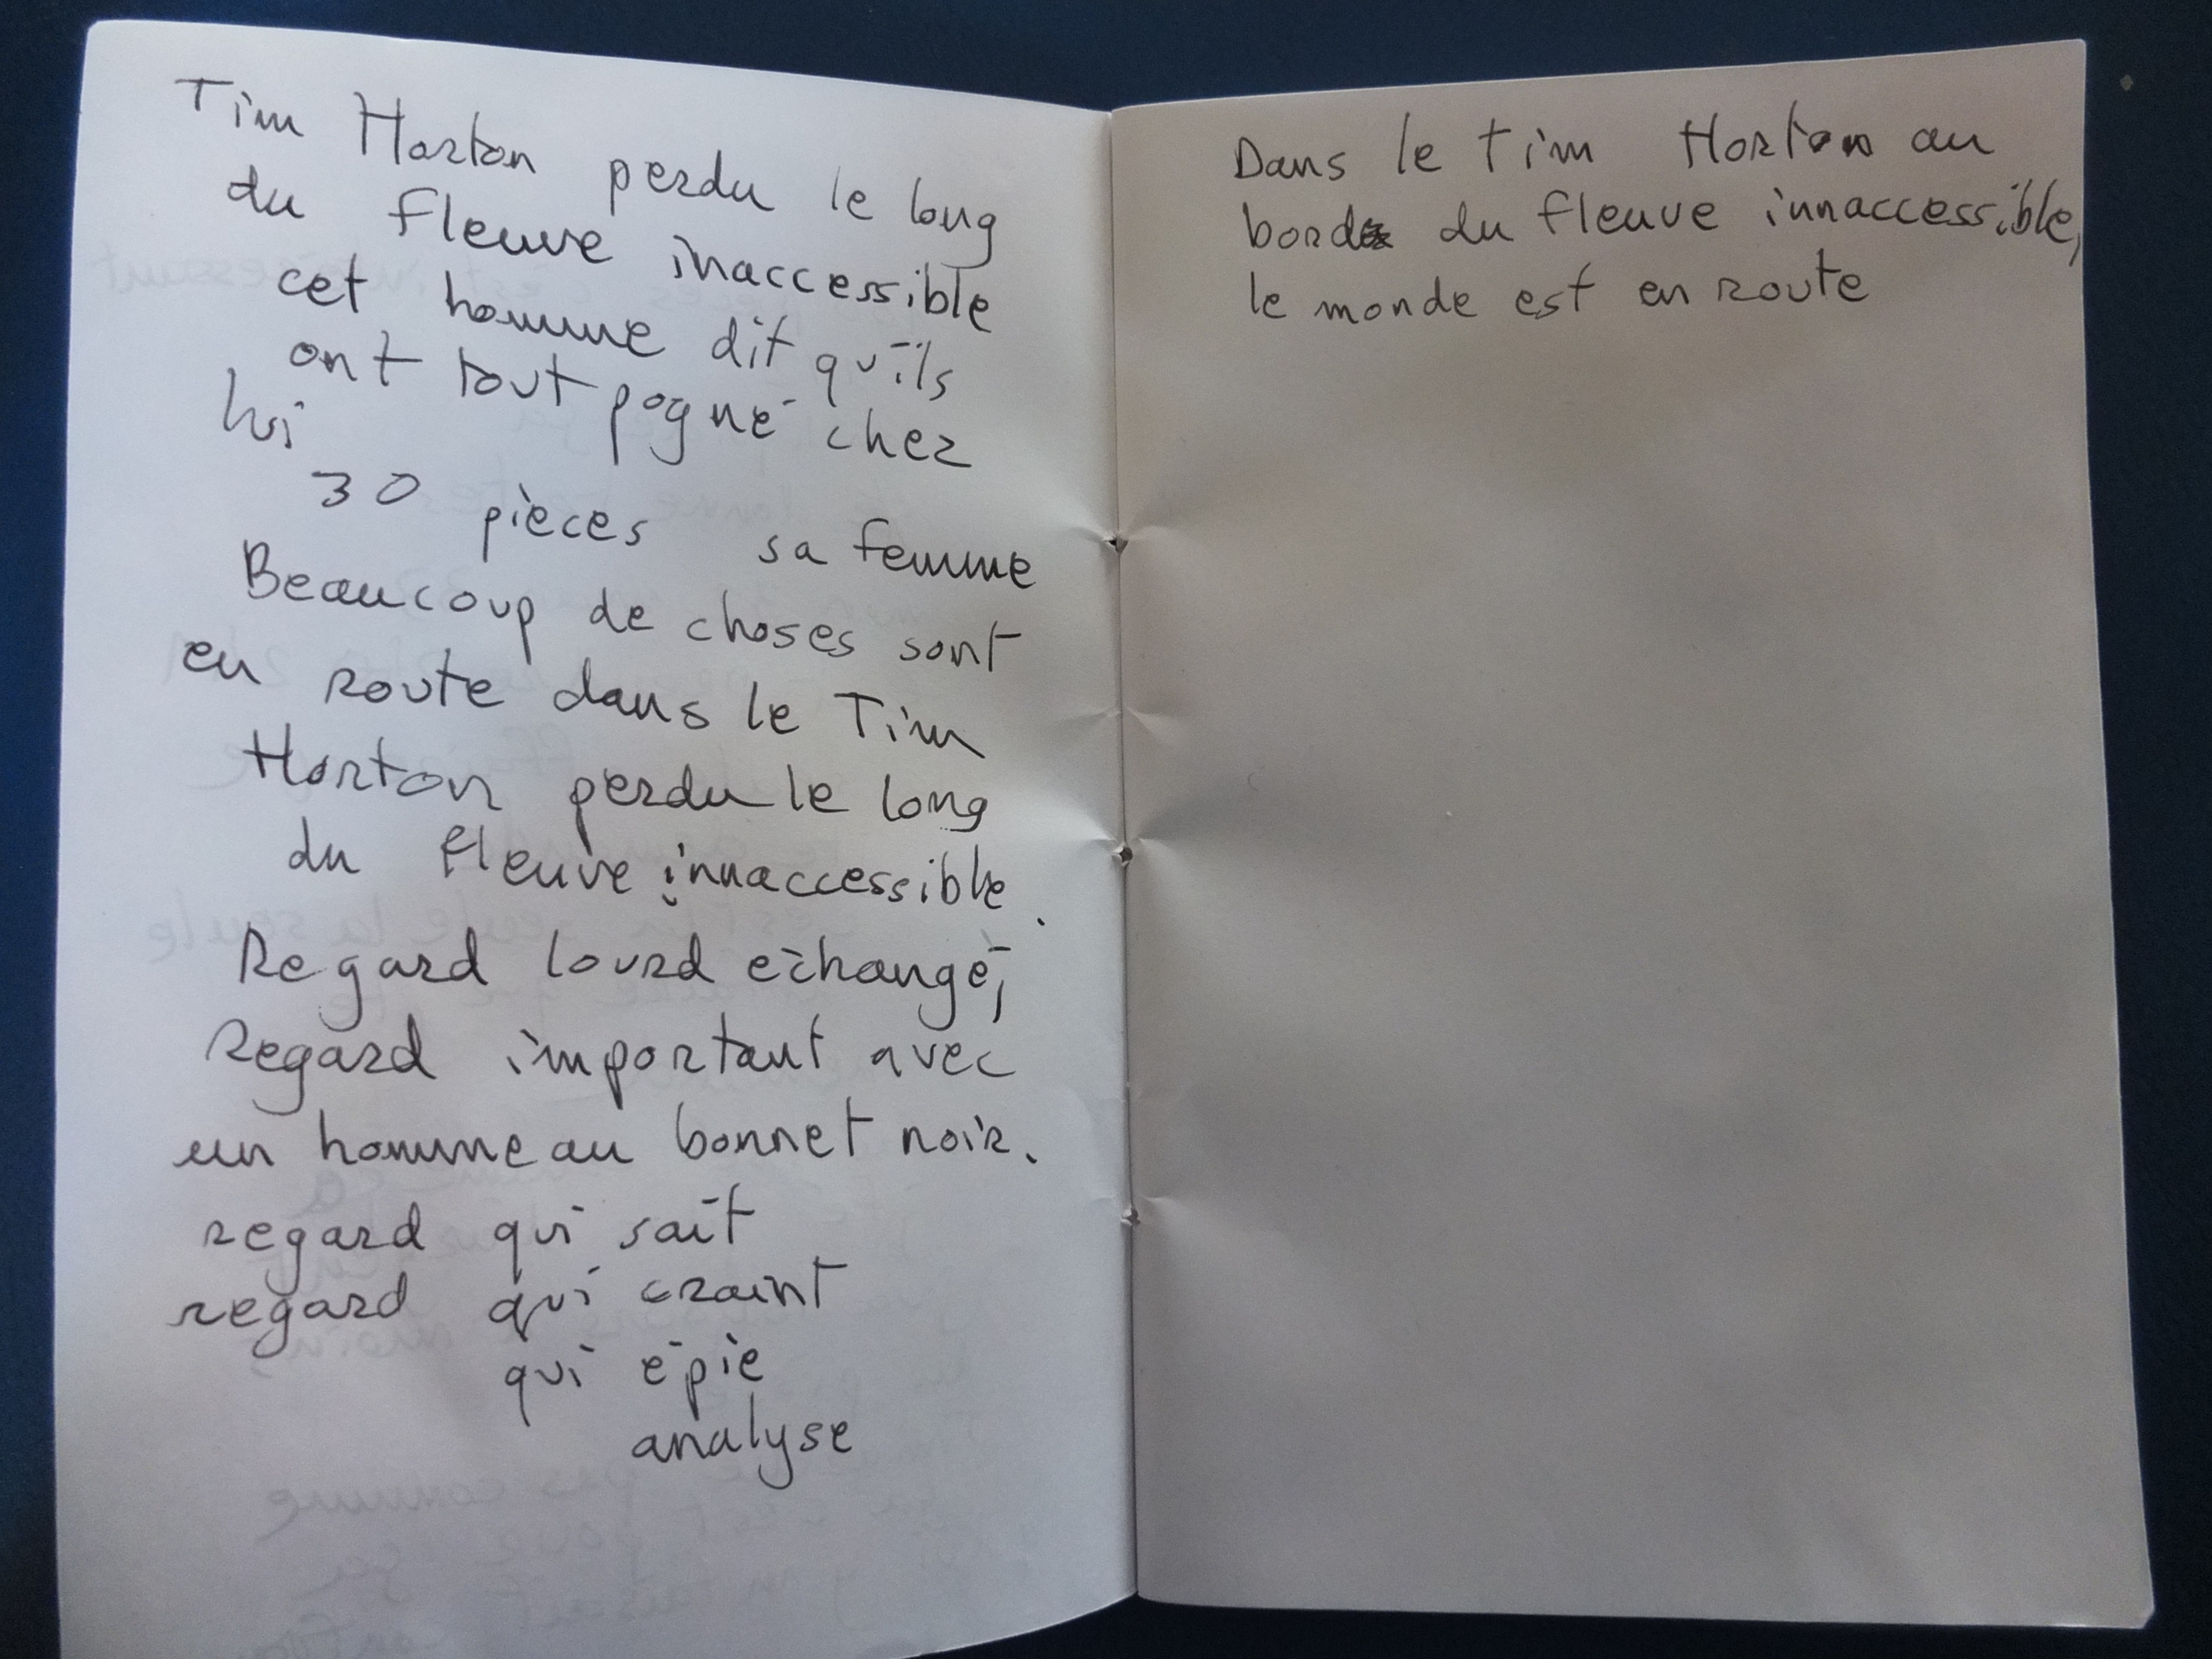 Tim Horton perdu le long
du fleuve inaccessible
cet homme dit qu'ils
ont tout pogné chez
lui
30 pièces sa femme
Beaucoup de choses sont
en route dans le Tim
Horton perdu le long
du fleuve innaccessible.
Regard lourd échangé,
Regard important avec
un homme au bonnet noir.
regard qui sait
regard qui craint
qui épie
analyse
Dans le Tim Horton au
bord du fleuve innaccessible,
le monde est en route